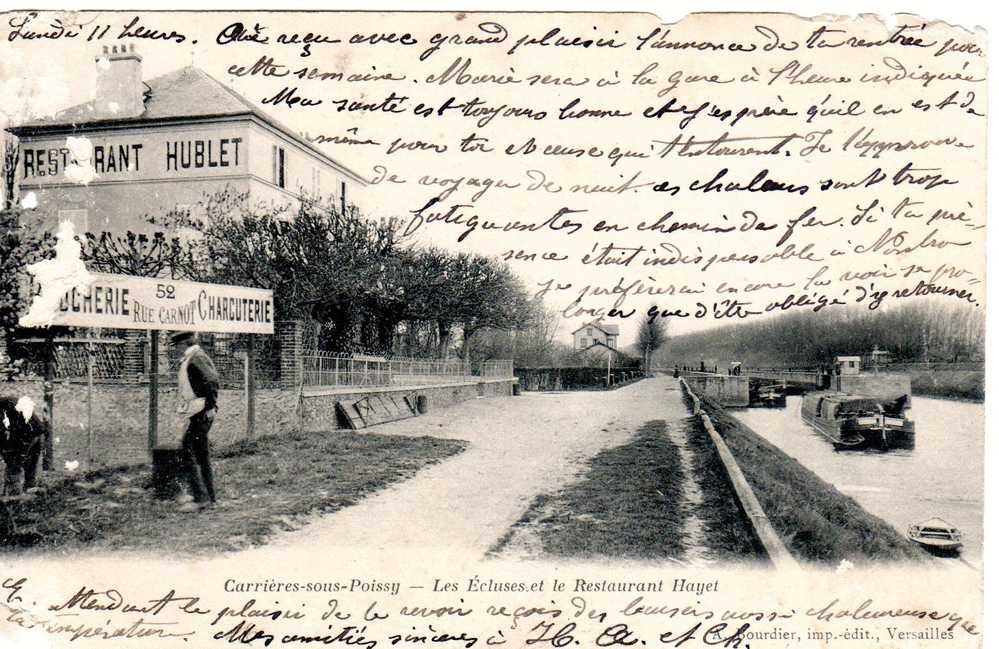 Lundi 11 heures. Ai reçu avec grand plaisir l'annonce de ta rentrée pour
cette semaine. Marie sera à la gare à l'heure indiquée
Ma santé est toujours bonne et j'espère qu'il en est de
même pour toi et ceux qui t'entourent. Je t'approuve
de voyager de nuit. es chaleurs sont trop
fatiguantes en chemin de fer. Si ta pré-
sence était indispensable à
je préférerai encore la voir se pro-
longer que d'être obligé d'y retourner.
RESTAURANT HUBLET
52
CHERIE RUE CARNOT CHARCUTERIE
Carrières-sous-Poissy — Les Écluses et le Restaurant Hayet
En attendant le plaisir de te revoir reçois des baisers aussi chaleureux que
la température. Mes amitiés sincères à H. A. et Ch.
A. Bourdier, imp.-édit., Versailles